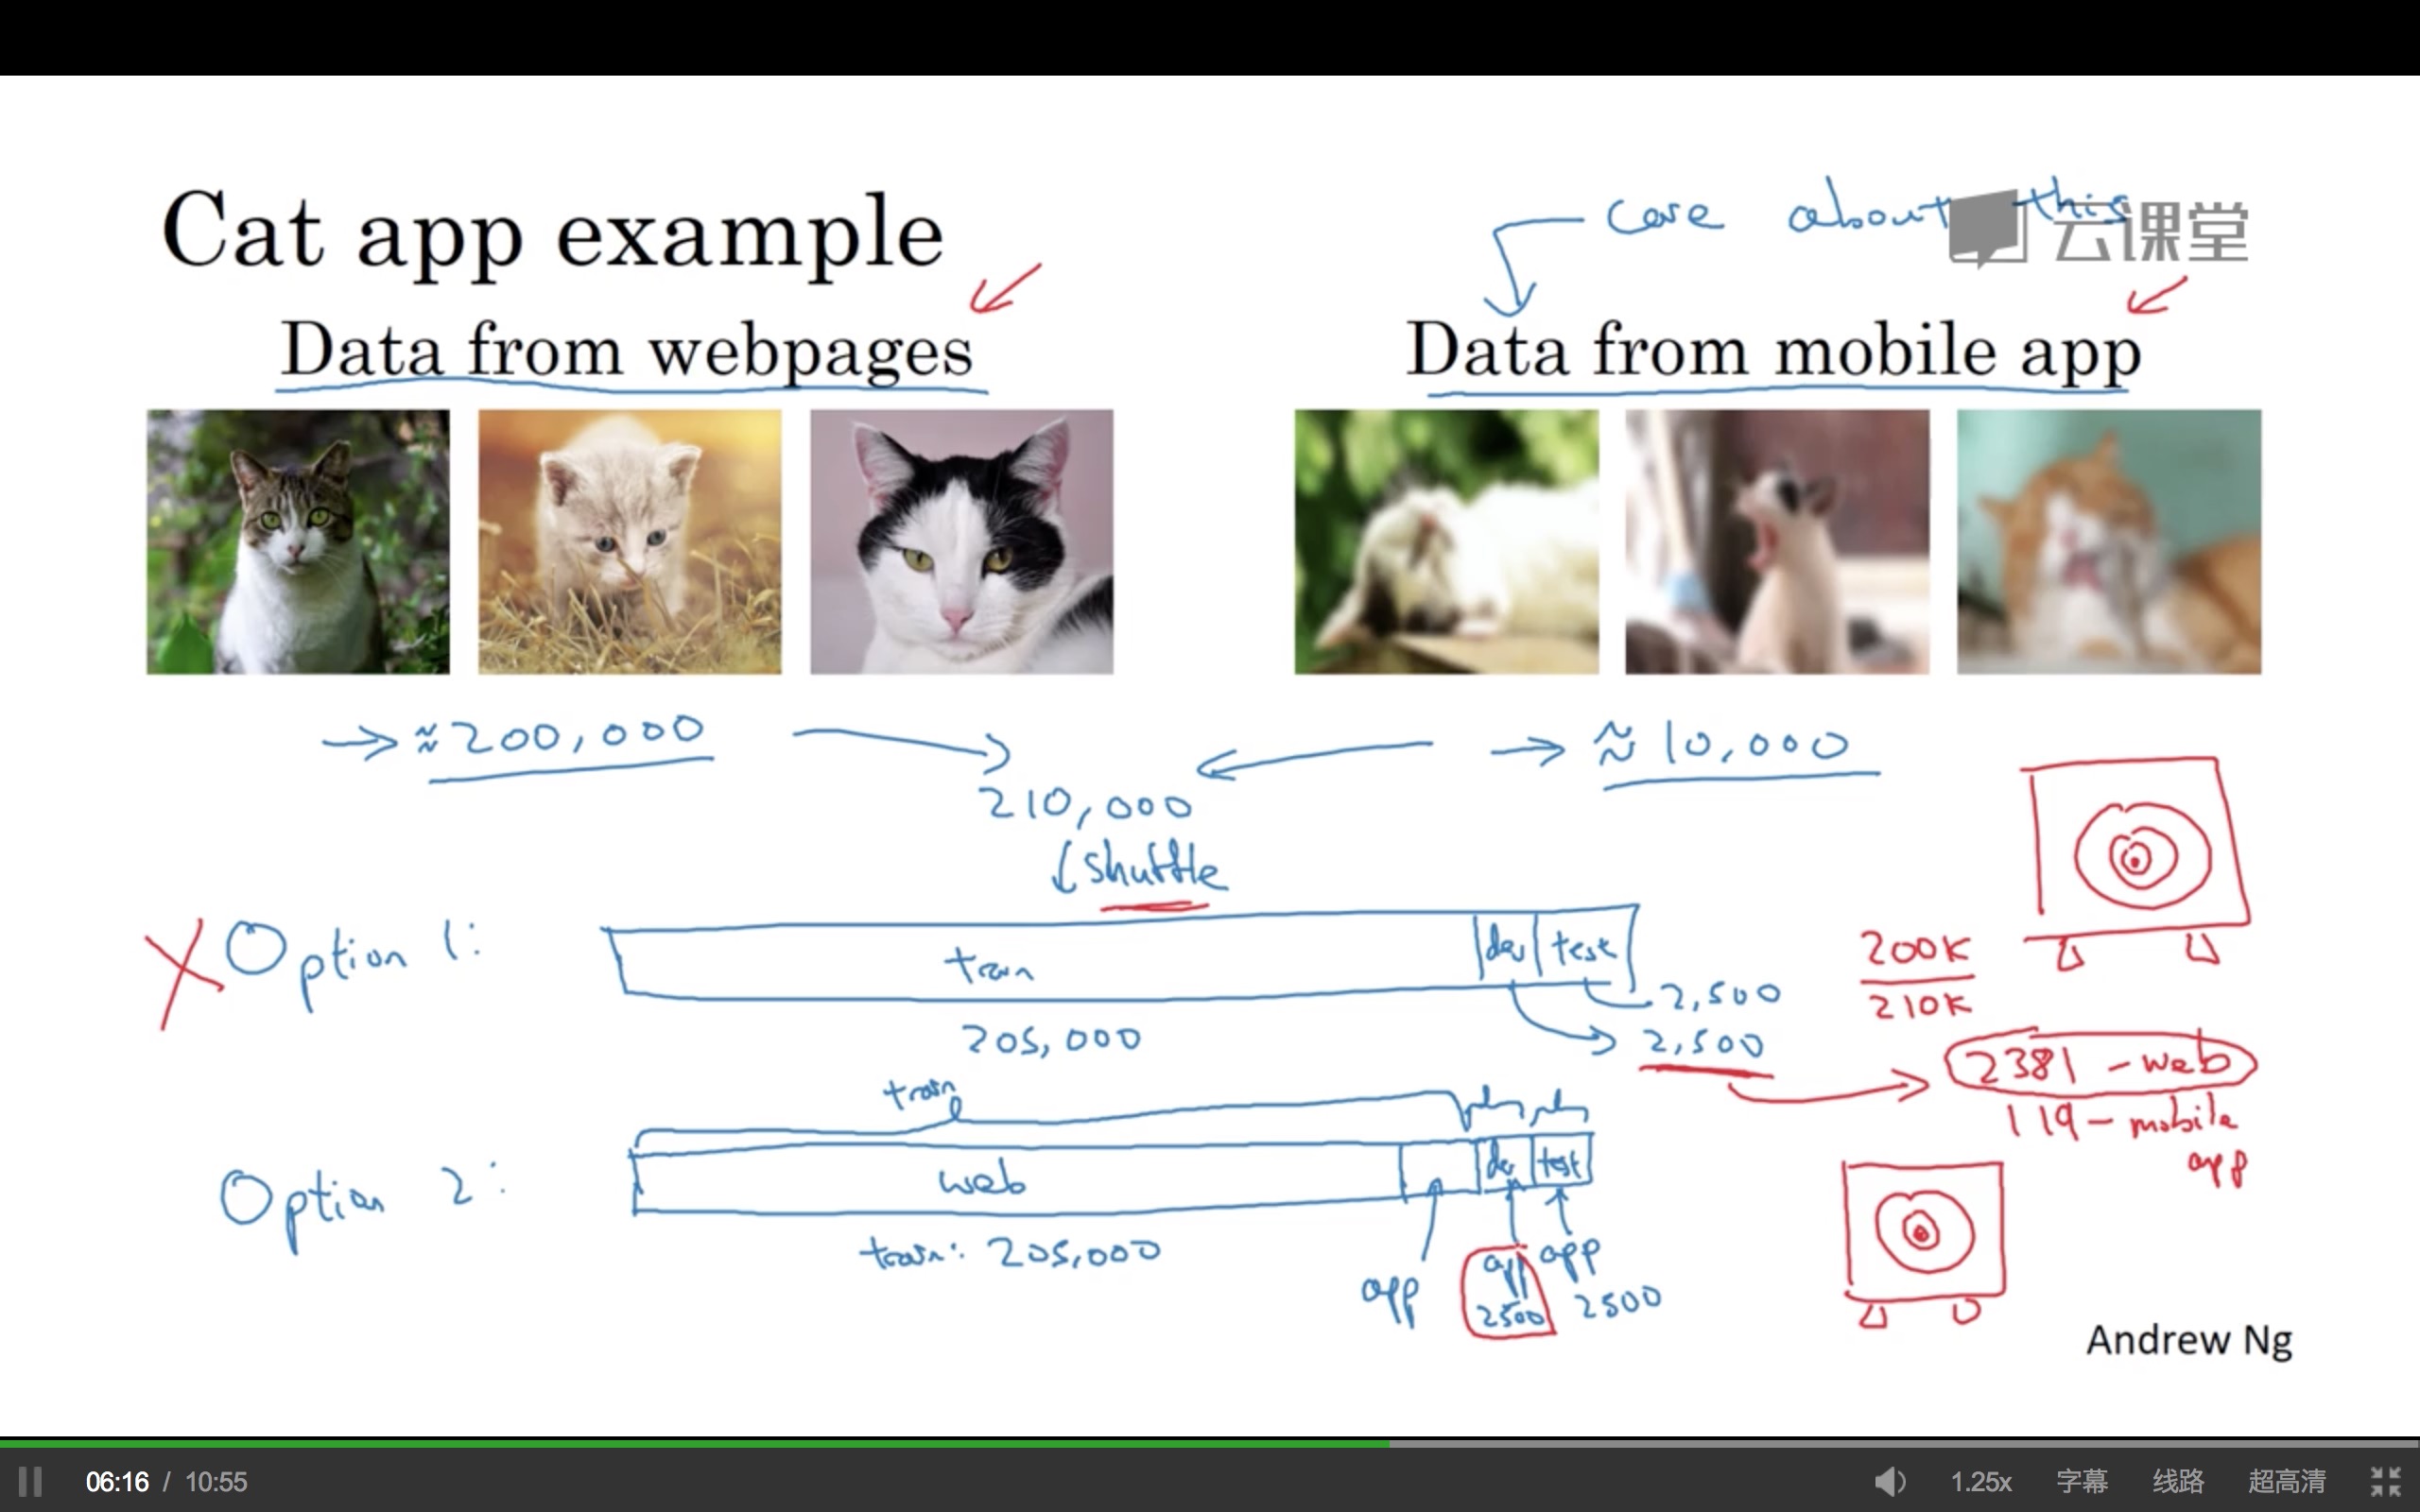 Cat app example
care about this
云课堂
Data from webpages
Data from mobile app
→ ≈ 200,000
→ ≈ 10,000
210,000
↓ shuffle
X Option 1:
train
dev
test
205,000
2,500
2,500
200K
210K
2381 - web
119 - mobile
app
train
Option 2:
web
dev
test
train: 205,000
app
app
2500
app
2500
Andrew Ng
06:16 / 10:55
1.25x
字幕
线路
超高清